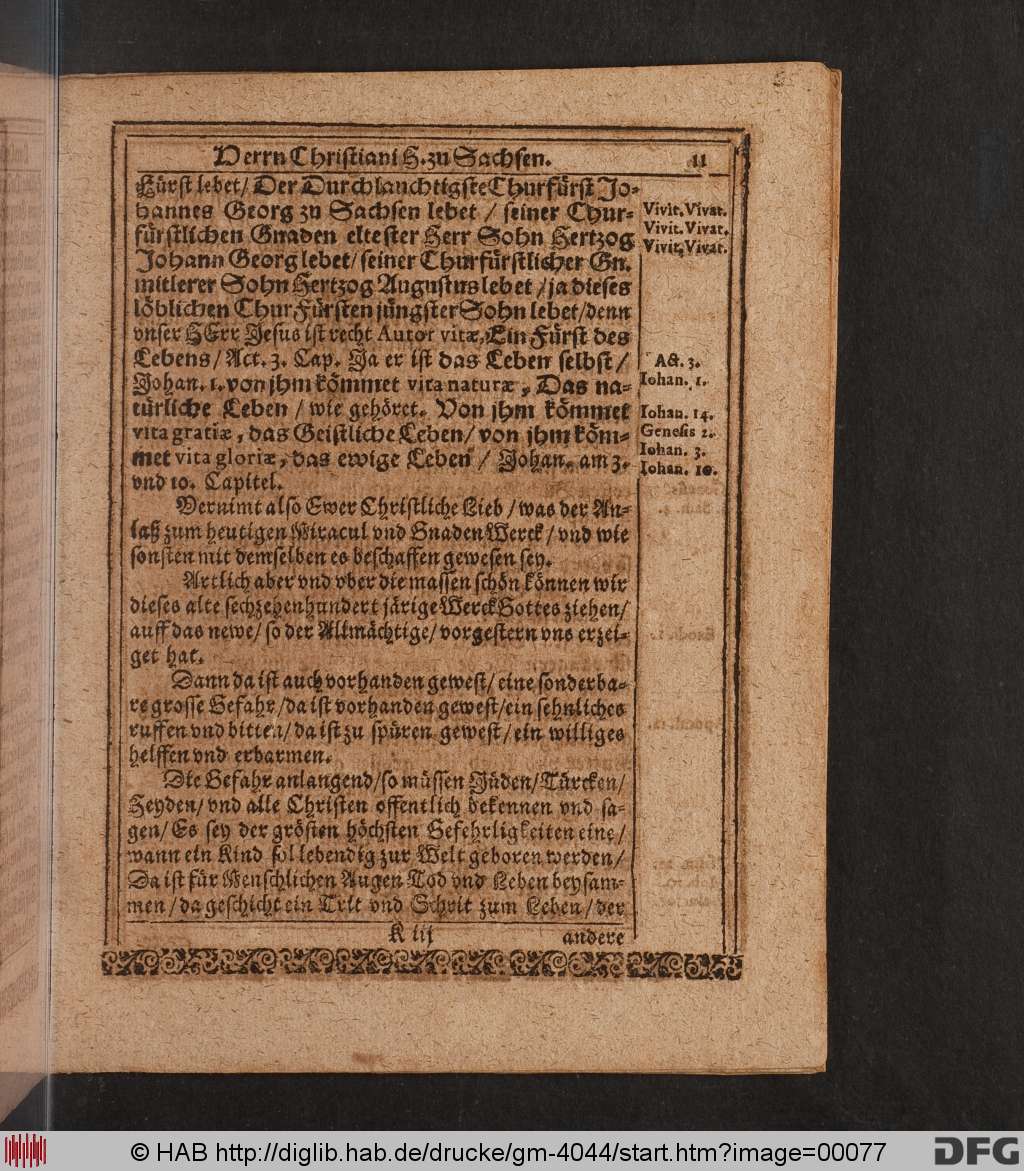 Herrn Christiani H. zu Sachsen. 11
Fürst lebet/ Der Durchlauchtigste Churfürst Jo-
hannes Georg zu Sachsen lebet / seiner Chur-
fürstlichen Gnaden eltester Herr Sohn Hertzog
Johann Georg lebet/ seiner Churfürstlicher Gn.
mitlerer Sohn Hertzog Augustus lebet / ja dieses
löblichen ChurFürsten jüngster Sohn lebet/denn
vnser HErr Jesus ist recht Autor vitæ, Ein Fürst des
Lebens/ Act. 3. Cap. Ja er ist das Leben selbst/
Johan. 1. von jhm kömmet vita naturæ, Das na-
türliche Leben / wie gehöret. Von jhm kömmet
vita gratiæ, das Geistliche Leben/ von jhm köm-
met vita gloriæ, das ewige Leben / Johan. am 3.
vnd 10. Capitel.
Vernimt also Ewer Christliche Lieb / was der An-
laß zum heutigen Miracul vnd GnadenWerck/ vnd wie
sonsten mit demselben es beschaffen gewesen sey.
Artlich aber vnd vber die massen schön können wir
dieses alte sechzehenhundert järige Werck Gottes ziehen/
auff das newe/ so der Allmächtige/ vorgestern vns erzei-
get hat.
Dann da ist auch vorhanden gewest/ eine sonderba-
re grosse Gefahr/da ist vorhanden gewest/ein sehnliches
ruffen vnd bitten/ da ist zu spüren gewest/ ein williges
helffen vnd erbarmen.
Die Gefahr anlangend/so müssen Jüden/Türcken/
Heyden/ vnd alle Christen offentlich bekennen vnd sa-
gen/ Es sey der grösten höchsten Gefehrligkeiten eine/
wann ein Kind sol lebendig zur Welt geboren werden/
Da ist für Menschlichen Augen Tod vnd Leben beysam-
men/ da geschicht ein Trit vnd Schrit zum Leben/ der
K iij andere
Vivit. Vivat.
Vivit. Vivat.
Vivit. Vivat.
Act. 3.
Iohan. 1.
Iohan. 14.
Genesis 2.
Iohan. 3.
Iohan. 10.
© HAB http://diglib.hab.de/drucke/gm-4044/start.htm?image=00077
DFG